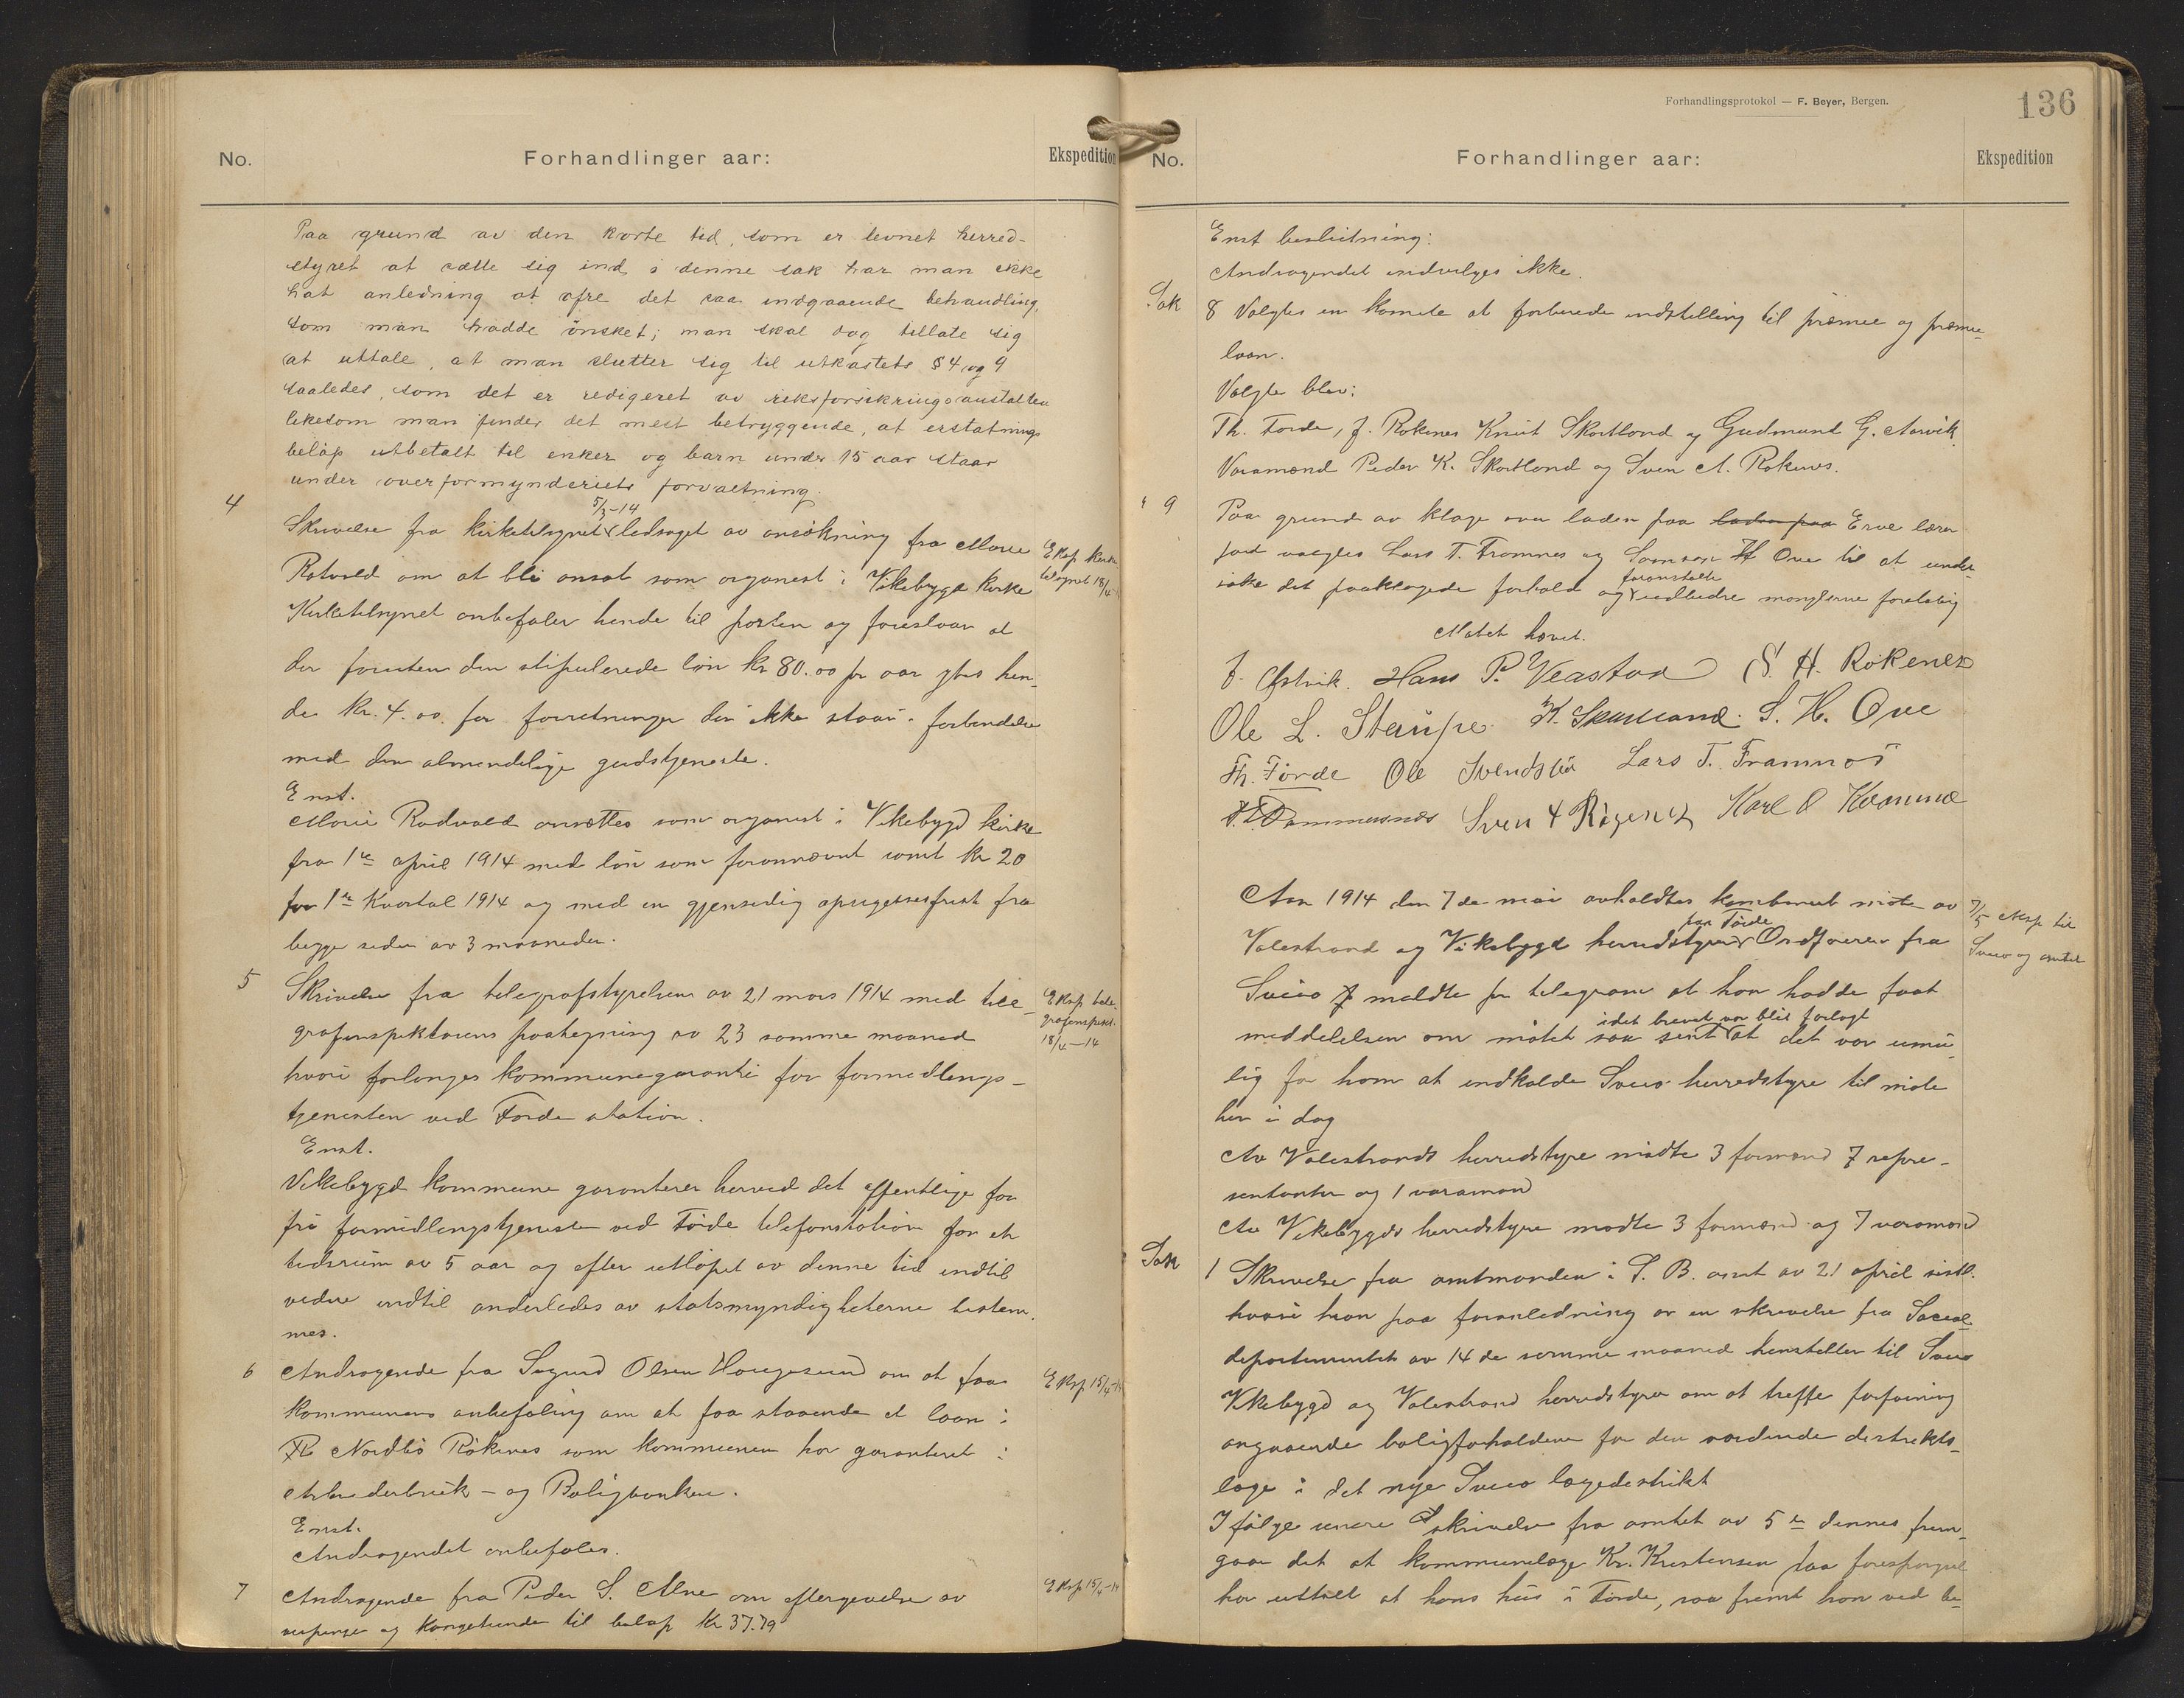 No.
Forhandlinger aar:
Ekspedition
Paa grund av den korte tid, som er levnet herred-
styret at sætte sig ind i denne sak har man ikke
hat anledning at ofre det saa indgaaende behandling,
som man hadde ønsket; man skal dog tillate sig
at uttale, at man slutter sig til utkastets § 4 og 9
saaledes, som det er redigeret av riksforsikringsanstalten
likesom man finder det mest betryggende, at erstatnings
beløp utbetalt til enker og barn under 15 aar staar
under overformynderiets forvaltning.
5/3-14
4 Skrivelse fra kirketilsynet ledsaget av ansökning fra Marie
Eksp kirke
Rotvold om at bli ansat som organist i Vikebygd kirke
tilsynet 18/4
Kirketilsynet anbefaler hende til posten og foreslaar at
der foruten den stipulerede løn kr 80.00 pr aar ytes hen-
de kr. 4.00 for forretninger der ikke staar i forbindelse
med den almindelige gudstjeneste.
Enst.
Marie Rodvold ansættes som organist i Vikebygd kirke
fra 1ste april 1914 med løn som forannævnt samt kr 20
for 1ste Kvartal 1914 og med en gjensidig opsigelsesfrist fra
begge sider av 3 maaneder.
5 Skrivelse fra telegrafstyrelsen av 21 mars 1914 med tele-
Eksp tele-
grafinspektørens paategning av 23 samme maaned
grafinspekt.
18/4-14
hvori forlanges kommunegaranti for formidlings-
tjenesten ved Førde station.
Enst.
Vikebygd kommune garanterer herved det offentlige for
fri formidlingstjeneste ved Førde telefonstation for et
tidsrum av 5 aar og efter utløpet av denne tid indtil
videre indtil anderledes av statsmyndigheterne bestem-
mes.
6 Andragende fra Sigurd Olsen Haugesund om at faa
Eksp 15/4-14
kommunens anbefaling om at faa staaende et laan i
Nordbø Rökenes som kommunen har garanteret i
Arbeiderbruk- og Boligbanken.
Enst.
Andragendet anbefales.
7 Andragende fra Peder S. Alne om eftergivelse av
Eksp 15/4-14
og kongetiende til beløp kr 37.79
Forhandlingsprotokol — F. Beyer, Bergen.
136
No.
Forhandlinger aar:
Ekspedition
Enst beslutning:
Andragendet indvilges ikke.
Sak 8 Valgtes en komite at forberede indstilling til præmie og præmie-
laan.
Valgte blev:
Th. Førde, J. Rökenes Knut Skartland og Gudmund G. Aarvik.
Varamænd Peder K. Skartland og Sven A. Rökenes.
" 9 Paa grund av klage over laden paa laden paa Erve lærer
jord valgtes Lars T. Framnes og Samson H Ove til at under-
foranstalte
søke det paaklagede forhold og utbedre manglerne foreløbig
Møtet hævet.
J. Østvik. Hans P. Veastad S. H. Rökenes
Ole L. Staupe K. Skartland. S. H. Ove
Th. Førde Ole Svendsbø Lars T. Framnes
Sven A Rögenes Karl O Kaamme
Aar 1914 den 7de mai avholdtes kombinert møte av
7/5 eksp til
paa Førde
Valestrand og Vikebygd herredstyrer Ordføreren fra
Sveio og amtet
Sveio meldte pr telegram at han hadde faat
idet brevet var blit forlagt
meddelelsen om møtet saa sent at det var umu-
lig for ham at indkalde Sveio herredstyre til møte
her i dag
Av Valestrands herredstyre møtte 3 formænd 7 repre-
sentanter og 1 varamand
Av Vikebygds herredstyre møtte 3 formænd og 7 varamænd
Sak 1 Skrivelse fra amtmanden i S. B. amt av 21 april sistl.
hvori han paa foranledning av en skrivelse fra Social-
departementet av 14de samme maaned henstiller til Sveio
Vikebygd og Valestrand herredstyrer om at træffe forføining
angaaende boligforholdene for den vordende distrikts-
læge i det nye Sveio lægedistrikt
Ifølge senere skrivelse fra amtet av 5te dennes frem-
gaar det at kommunelæge Kr. Kristensen paa forespørgsel
har uttalt at hans hus i Førde, saa fremt han ved be-